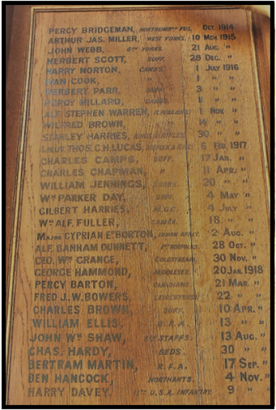 PERCY BRIDGEMAN, OCT. 1914
ARTHUR JAS. MILLER, WEST YORKS. 10 MCH 1915
JOHN WEBB, YORKS. 21 AUG. "
HERBERT SCOTT, SUFF. 28 DEC. "
HARRY NORTON, CAMBS. 1 JULY 1916
IVAN COOK, " " "
HERBERT PARR, SUFF. 3 " "
PERCY MILLARD, " "
ALF. STEPHEN WARREN, 1 NOV. "
WILFRED BROWN, 14 " "
STANLEY HARRIES, 30 " "
LIEUT. THOS. C.H. LUCAS, 6 FEB. 1917
CHARLES CAMPS, SUFF. 17 JAN. "
CHARLES CHAPMAN, " 11 APR. "
WILLIAM JENNINGS, 20 " "
WM PARKER DAY, 4 MAY "
GILBERT HARRIES, M.G.C. 4 JULY "
WM ALF. FULLER, CAMBS. 18 " "
MAJOR CYPRIAN E. BORTON, 2 AUG. "
ALF. BANHAM DUNNETT, 28 OCT. "
GEO. WM GRANGE, COLDSTREAM. 30 NOV. "
GEORGE HAMMOND, MIDDLESEX. 20 JAN. 1918
PERCY BARTON, 21 MAR. "
FRED J.W. BOWERS, LEICESTERS. 22 " "
CHARLES BROWN, SUFF. 10 APR. "
WILLIAM ELLIS, R.F.A. 13 " "
JOHN WM SHAW, STAFFS. 13 AUG. "
CHAS. HARDY, BEDS. 30 " "
BERTRAM MARTIN, R.F.A. 17 SEP. "
BEN HANCOCK, NORTHANTS. 4 NOV. "
HARRY DAVEY, U.S.A. INFANTRY. 9 " "